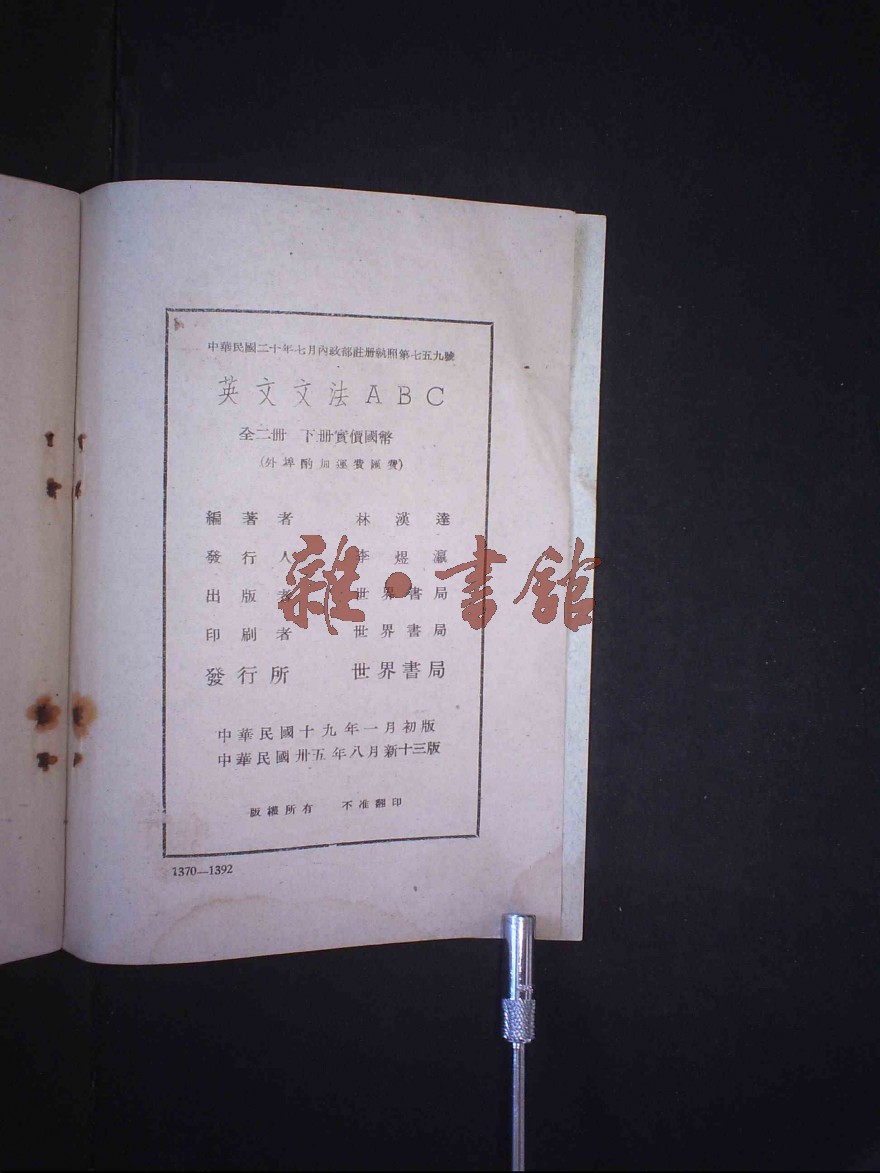 中華民國二十年七月內政部註册執照第七五九號
英文文法ABC
全二冊 下冊實價國幣
(外埠酌加運費匯費)
編著者 林漢達
發行人 李煜瀛
出版者 世界書局
印刷者 世界書局
發行所 世界書局
雜·書館
中華民國十九年一月初版
中華民國卅五年八月新十三版
版權所有 不准翻印
1370—1392